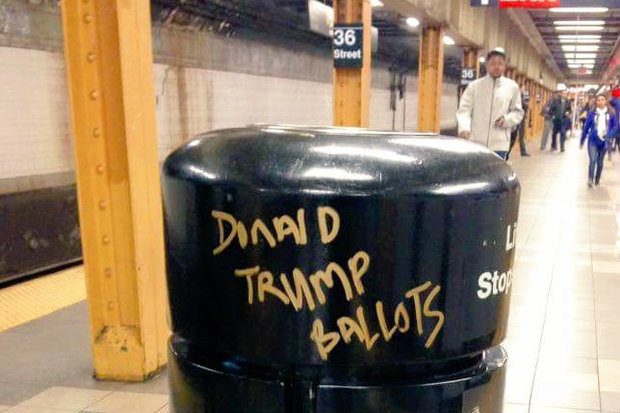 36
Street
36
DONALD
TRUMP
BALLOTS
Stop